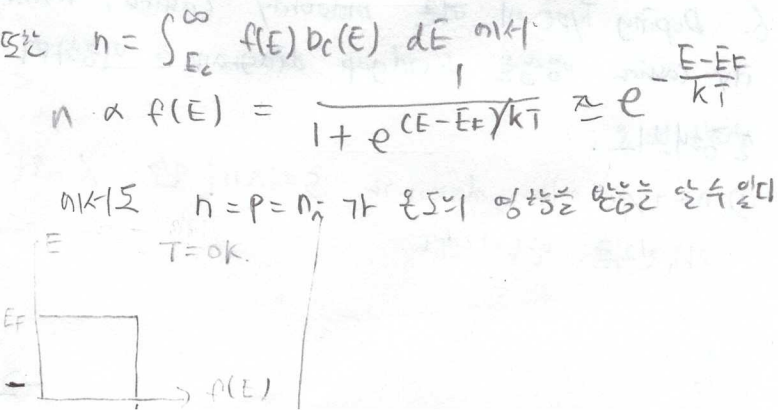 또한 n = ∫_{Ec}^{∞} f(E) Dc(E) dE 에서
n ∝ f(E) = 1 / (1 + e^{(E-EF)/kT}) ≈ e^{-(E-EF)/kT}
에서도 n = p = nᵢ 가 온도의 영향을 받음을 알 수 있다
E T=0K.
EF
f(E)